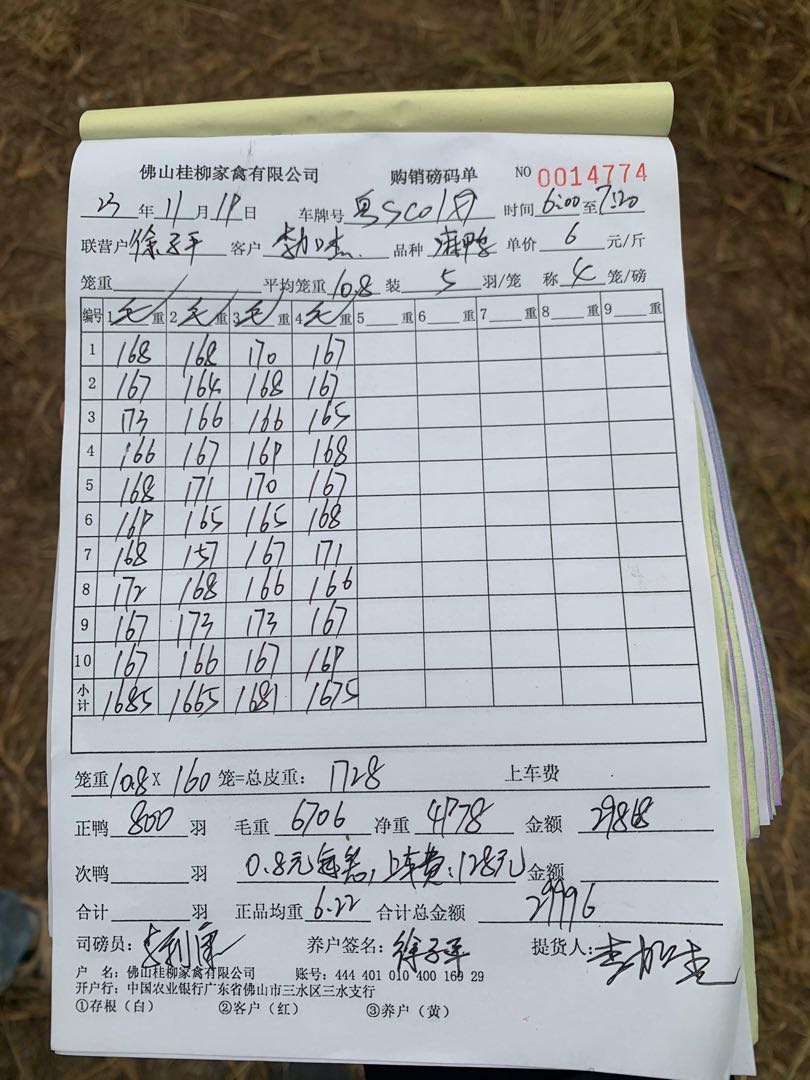 佛山桂柳家禽有限公司 购销磅码单 NO 0014774
23 年 11 月 19 日 车牌号 时间 6:00 至 7:20
联营户 徐子平 客户 李加杰 品种 单价 6 元/斤
笼重 平均笼重 10.8 装 5 羽/笼 称 4 笼/磅
编号 1 毛 重 2 毛 重 3 毛 重 4 毛 重 5 重 6 重 7 重 8 重 9 重
1 168 168 170 167
2 167 164 168 167
3 173 166 166 165
4 166 167 169 168
5 168 171 170 167
6 169 165 165 168
7 168 157 167 171
8 172 168 166 166
9 167 173 173 167
10 167 166 167 169
小计 1685 1665 1681 1675
笼重 10.8 X 160 笼=总皮重: 1728 上车费
正鸭 800 羽 毛重 6706 净重 4978 金额 29868
次鸭 羽 0.8元每笼,上车费:128元 金额
合计 羽 正品均重 6.22 合计总金额 29996
司磅员: 养户签名: 徐子平 提货人: 李加杰
户 名: 佛山桂柳家禽有限公司 账号: 444 401 010 400 169 29
开户行: 中国农业银行广东省佛山市三水区三水支行
①存根（白） ②客户（红） ③养户（黄）